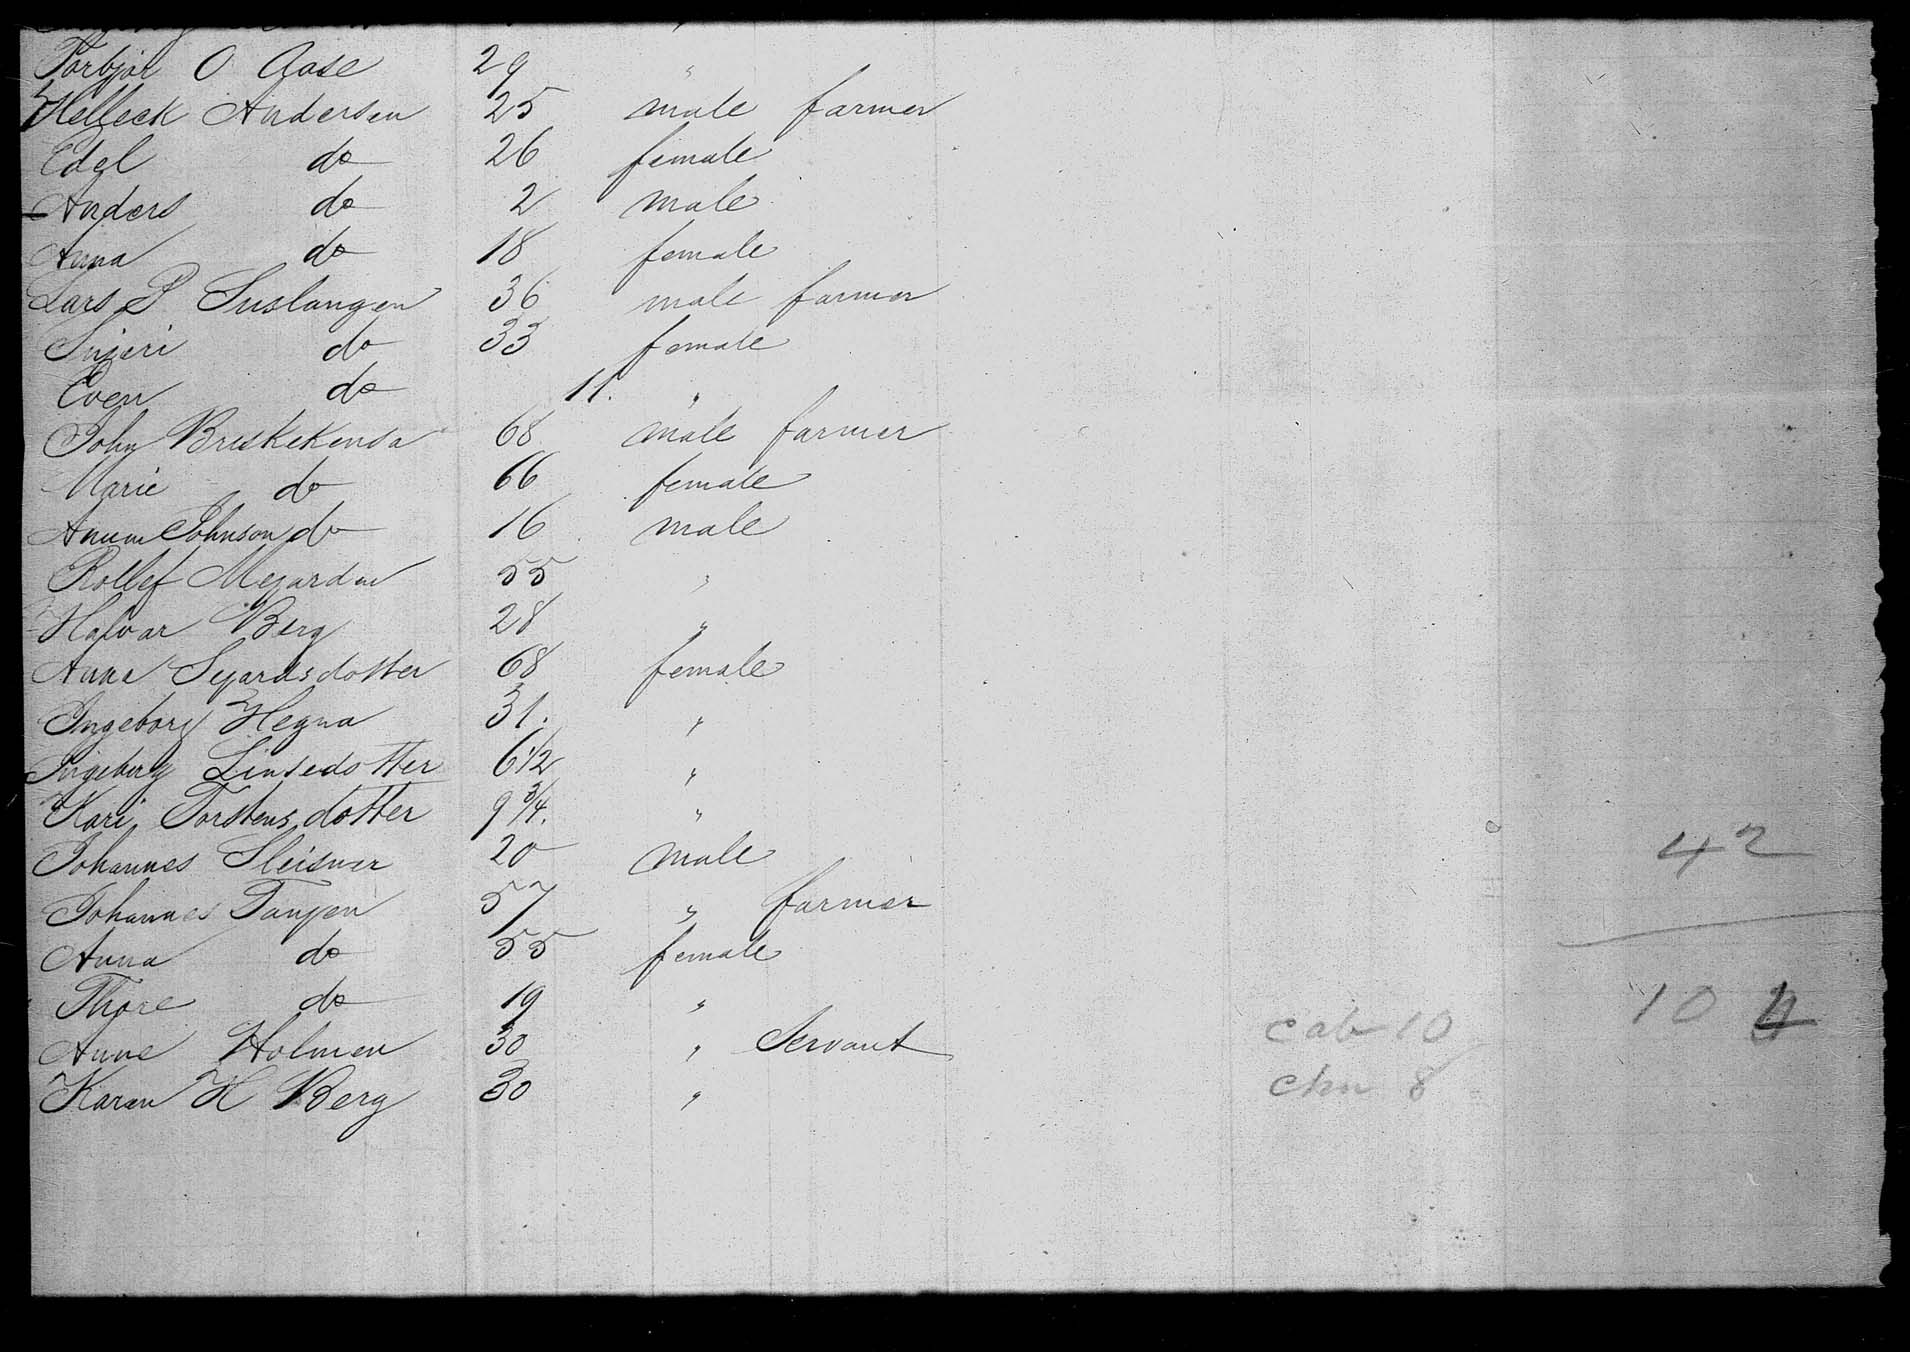 Torbjör O Aase 29 "
Helleck Andersen 25 male farmer
Edel do 26 female
Anders do 2 male
Anna do 18 female
Lars P Suslangen 36 male farmer
Sigeri do 33 female
Even do 11. "
John Breskekensa 68 male farmer
Marie do 66 female
Anum Johnson do 16 male
Rollef Megarden 55 "
Halvar Berg 28 "
Anna Sejardsdotter 68 female
Ingeborg Hegna 31. "
Ingeborg Linsedotter 6 1/2 "
Kari Torstensdotter 9 3/4. "
Johannes Sleisner 20 male
Johannes Tangen 57 " farmer
Anna do 55 female
Thore do 19 "
Anne Holmen 30 " Servant
Karen H Berg 30 "
42
10
cab 10
chn 8